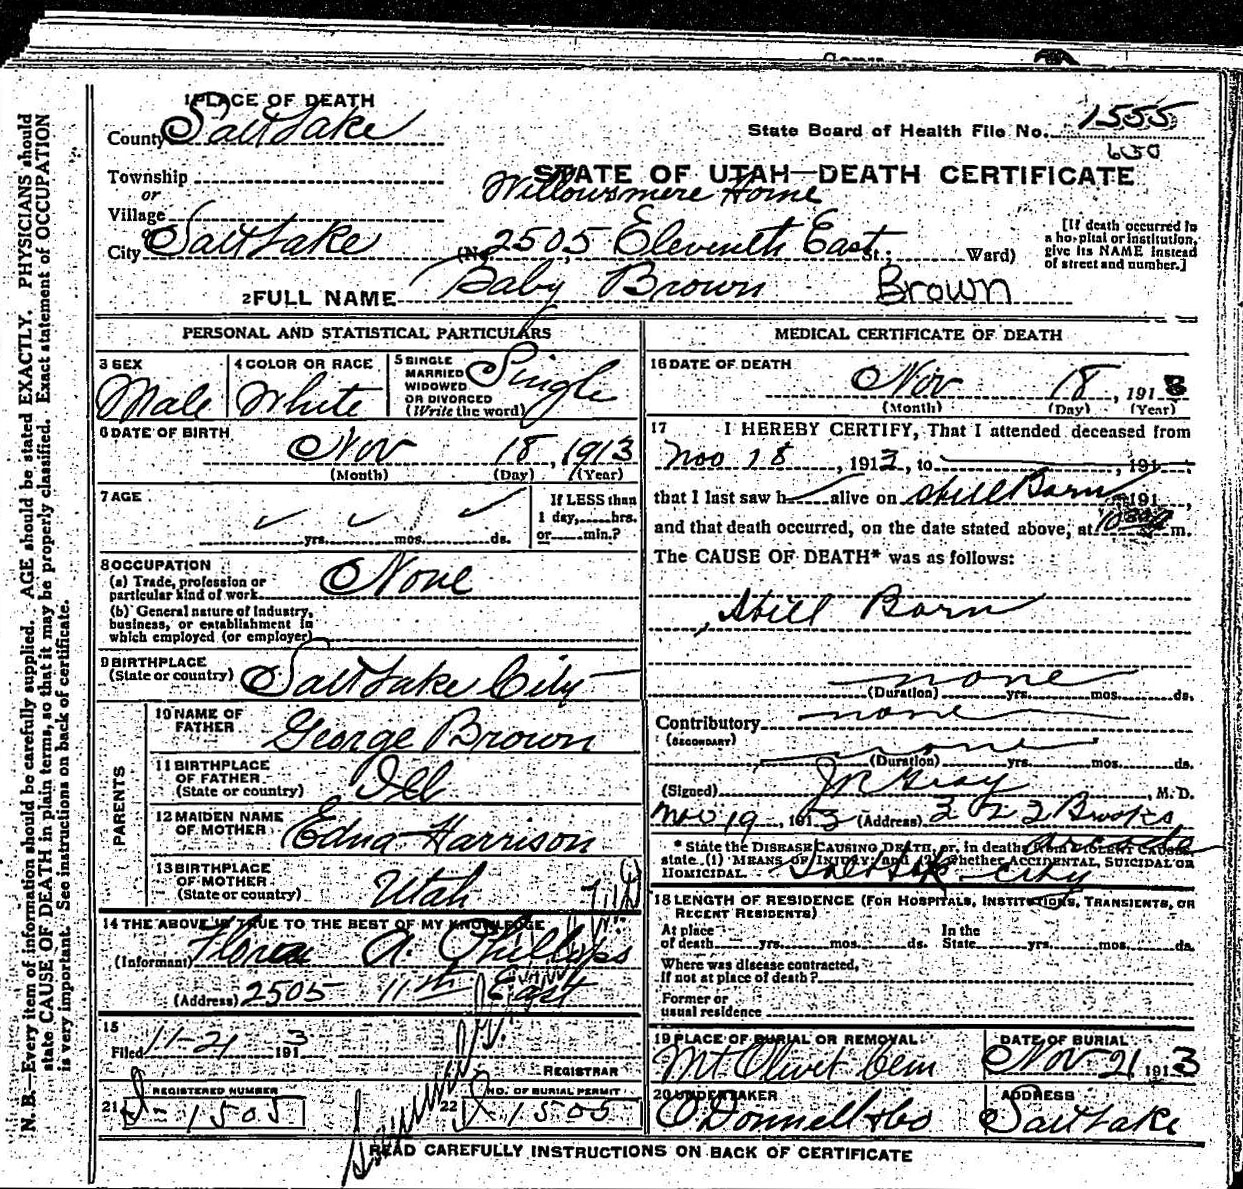 N. B.—Every item of information should be carefully supplied. AGE should be stated EXACTLY. PHYSICIANS should
state CAUSE OF DEATH in plain terms, so that it may be properly classified. Exact statement of OCCUPATION
is very important. See instructions on back of certificate.
1 PLACE OF DEATH
County Salt Lake
State Board of Health File No. 1555
650
Township
or
Village
STATE OF UTAH—DEATH CERTIFICATE
Willowsmere Home
City Salt Lake (No. 2505 Eleventh East St.; Ward)
[If death occurred in
a hospital or institution,
give its NAME instead
of street and number.]
2 FULL NAME Baby Brown Brown
PERSONAL AND STATISTICAL PARTICULARS
3 SEX
Male
4 COLOR OR RACE
White
5 SINGLE
MARRIED
WIDOWED
OR DIVORCED
(Write the word)
Single
6 DATE OF BIRTH
Nov 18, 1913
(Month) (Day) (Year)
7 AGE
yrs. mos. ds.
If LESS than
1 day, hrs.
or min.?
8 OCCUPATION
(a) Trade, profession or
particular kind of work None
(b) General nature of Industry,
business, or establishment in
which employed (or employer)
9 BIRTHPLACE
(State or country) Salt Lake City
PARENTS
10 NAME OF
FATHER George Brown
11 BIRTHPLACE
OF FATHER
(State or country) Ill
12 MAIDEN NAME
OF MOTHER Edna Harrison
13 BIRTHPLACE
OF MOTHER
(State or country) Utah
14 THE ABOVE IS TRUE TO THE BEST OF MY KNOWLEDGE
(Informant) A. Phillips
(Address) 2505 11th East
15
Filed 11-21 1913
REGISTRAR
21 REGISTERED NUMBER
1505
22 NO. OF BURIAL PERMIT
1505
MEDICAL CERTIFICATE OF DEATH
16 DATE OF DEATH
Nov 18, 1913
(Month) (Day) (Year)
17 I HEREBY CERTIFY, That I attended deceased from
Nov 18, 1913, to , 191
that I last saw h alive on Still Born, 191 ,
and that death occurred, on the date stated above, at m.
The CAUSE OF DEATH* was as follows:
Still Born
none
(Duration) yrs. mos. ds.
Contributory none
(SECONDARY)
none
(Duration) yrs. mos. ds.
(Signed) J R Gray, M. D.
Nov 19, 1913 (Address) 322 Brooks
* State the DISEASE CAUSING DEATH, or, in deaths from VIOLENT CAUSES,
state (1) MEANS OF INJURY; and (2) whether ACCIDENTAL, SUICIDAL OR
HOMICIDAL.
Salt Lake City
18 LENGTH OF RESIDENCE (FOR HOSPITALS, INSTITUTIONS, TRANSIENTS, OR
RECENT RESIDENTS)
At place
of death yrs. mos. ds.
In the
State yrs. mos. ds.
Where was disease contracted,
If not at place of death?
Former or
usual residence
19 PLACE OF BURIAL OR REMOVAL:
Mt Olivet Cem
DATE OF BURIAL
Nov 21, 1913
20 UNDERTAKER
O'Donnell & Co
ADDRESS
Salt Lake
READ CAREFULLY INSTRUCTIONS ON BACK OF CERTIFICATE